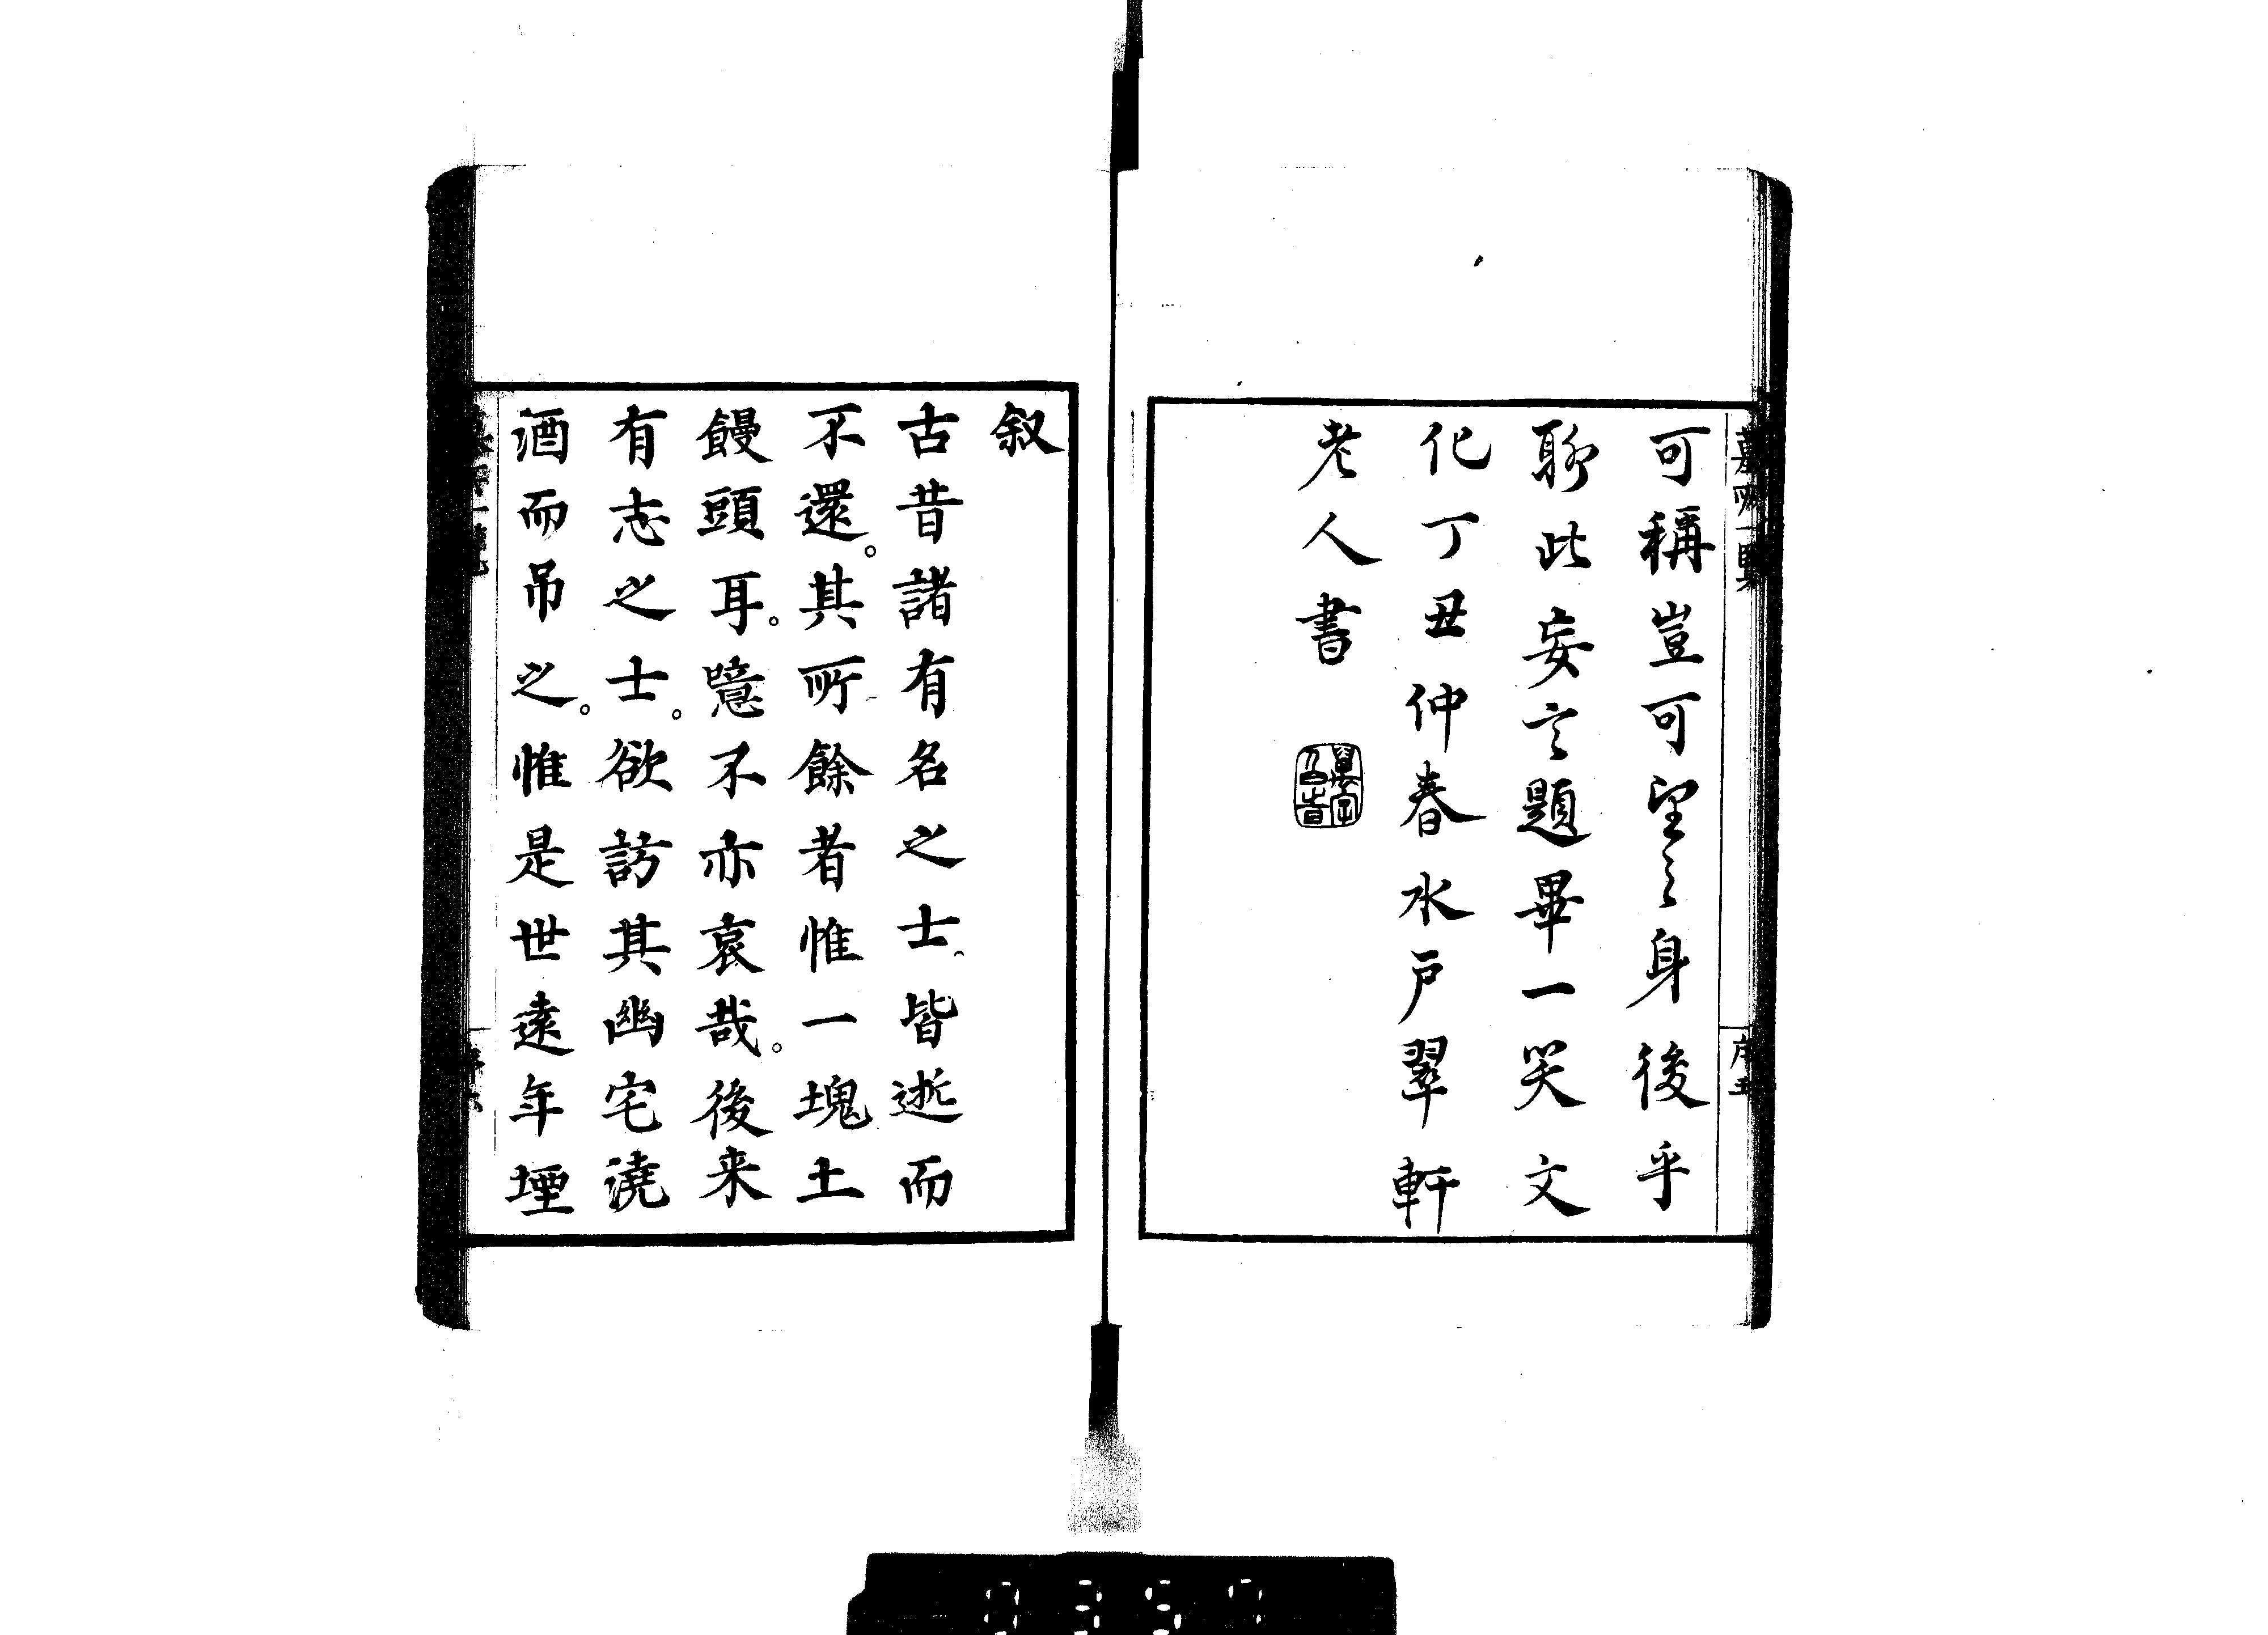 墓所一覧
序五
可稱豈可望之身後乎
聊此妄言題畢一笑文
化丁丑仲春水戸翠軒
老人書
叙
古昔諸有名之士皆逝而
不還。其所餘者惟一塊土
饅頭耳。噫不亦哀哉。後来
有志之士。欲訪其幽宅澆
酒而吊之。惟是世遠年堙